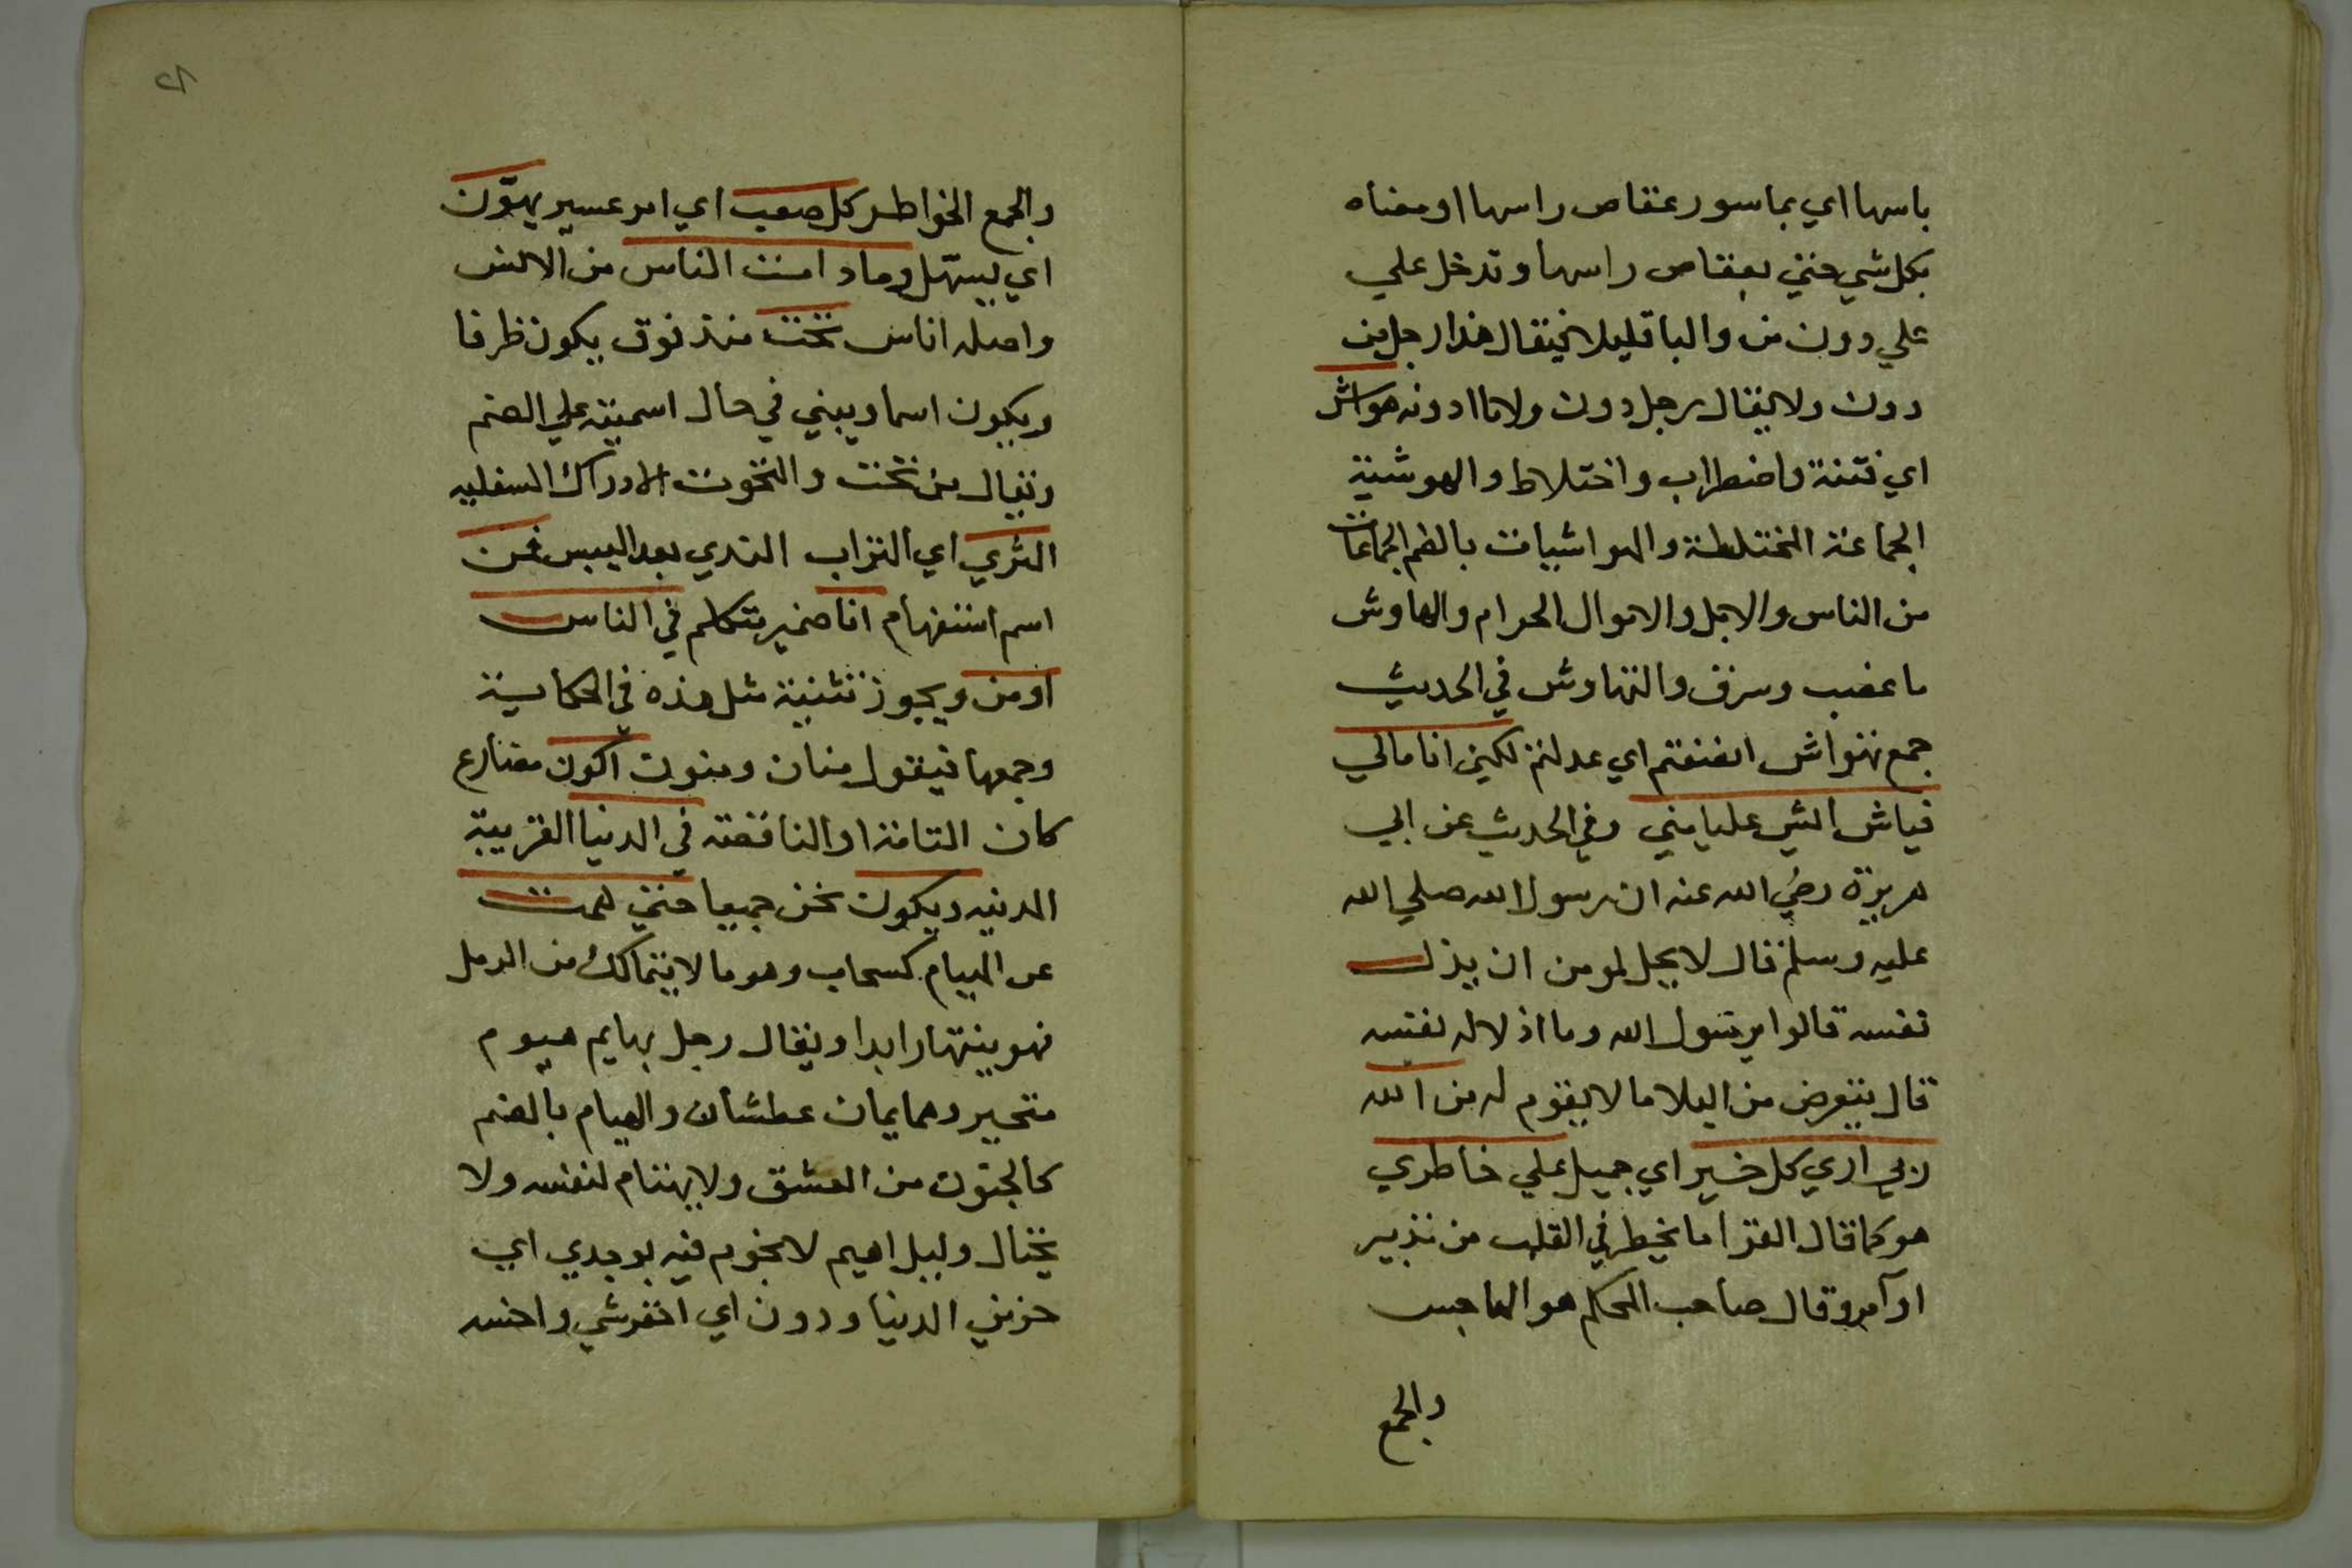 باسها اي بماسور عقاص راسها او معناه
بكل شي حتي بعقاص راسها وتدخل علي
علي دون من والبا قليلا فيقال هذا رجل من
دون ولا يقال رجل دون ولا ما ادونه هواش
اي فتنة واضطراب واختلاط والهوشية
الجماعة المختلطة والهواشيات بالضم الجماعات
من الناس والابل والاموال الحرام والهاوش
ما غصب وسرق والتهاوش في الحديث
جمع تهواش انفنفتم اي عدلتم لكني انا مالي
فياش الشي عليا مني وفي الحديث عن ابي
هريرة رضي الله عنه ان رسول الله صلي الله
عليه وسلم قال لا يحل لمومن ان يذل
نفسه قالوا يرسول الله وما اذلاله نفسه
قال يتعرض من البلا ما لا يقوم له من الله
ربي اري كل خير اي جميل علي خاطري
هو كما قال الفرا ما يخطر في القلب من تدبير
او امر وقال صاحب المحكم هو الهاجس
والجمع
والجمع الخواطر كل صعب اي امر عسير يهوّن
اي يسهل وما دامت الناس من الانس
واصله اناس تحت منذ فوق يكون ظرفا
ويكون اسما ويبني في حال اسميته علي الضم
ويقال من تحت والتحوت الادراك السفليه
الثري اي التراب الندي بعد اليبس فمن
اسم استفهام انا ضمير متكلم في الناس
او من ويجوز تثنية مثل هذه في الحكاية
وجمعها فيقول منان ومنون اكون مضارع
كان التامة او الناقصة في الدنيا القريبة
الدنيه ويكون نحن جميعا حتي همت
عن الهيام كسحاب وهو ما لا يتمالك من الرمل
فهو ينهار ابدا ويقال رجل بهايم هيوم
متحير وهمايمان عطشان والهيام بالضم
كالجنون من العشق ولا يهتام لنفسه ولا
يحتال وليل اهيم لا نجوم فيه بوجدي اي
حزني الدنيا ودون اي احقر شي واخسه